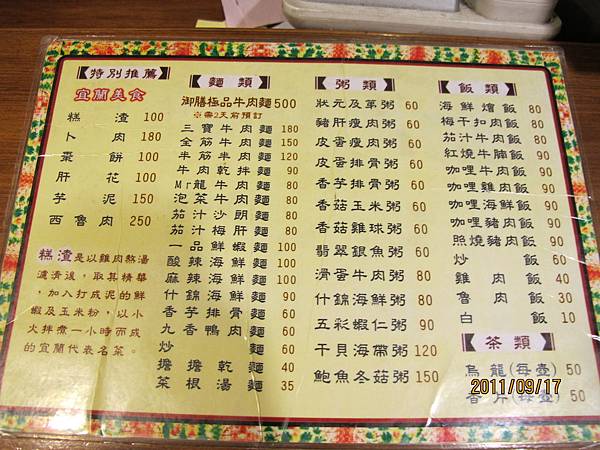 特別推薦
宜蘭美食
糕渣 100
卜肉 180
棗餅 100
肝花 100
芋泥 150
西魯肉 250
糕渣是以雞肉熬湯
濾清後，取其精華
，加入打成泥的鮮
蝦及玉米粉，以小
火拌煮一小時而成
的宜蘭代表名菜。
麵類
御膳極品牛肉麵 500
※需2天前預訂
三寶牛肉麵 180
全筋牛肉麵 150
半筋半肉麵 120
牛肉乾拌麵 90
Mr龍牛肉麵 80
泡菜牛肉麵 80
茄汁沙朗麵 80
茄汁梅肝麵 80
一品鮮蝦麵 100
酸辣海鮮麵 100
麻辣海鮮麵 100
什錦海鮮麵 90
香芋排骨麵 60
九香鴨肉麵 60
炒麵 60
擔擔乾麵 40
菜根湯麵 35
粥類
狀元及第粥 60
豬肝瘦肉粥 60
皮蛋瘦肉粥 60
皮蛋排骨粥 60
香芋排骨粥 60
香菇玉米粥 60
香菇雞球粥 60
翡翠銀魚粥 60
滑蛋牛肉粥 80
什錦海鮮粥 80
五彩蝦仁粥 90
干貝海帶粥 120
鮑魚冬菇粥 150
飯類
海鮮燴飯 80
梅干扣肉飯 80
茄汁牛肉飯 80
紅燒牛腩飯 90
咖哩牛肉飯 90
咖哩雞肉飯 90
咖哩海鮮飯 90
咖哩豬肉飯 90
照燒豬肉飯 90
炒飯 60
雞肉飯 40
魯肉飯 30
白飯 10
茶類
烏龍(每壺) 50
香片(每壺) 50
2011/09/17